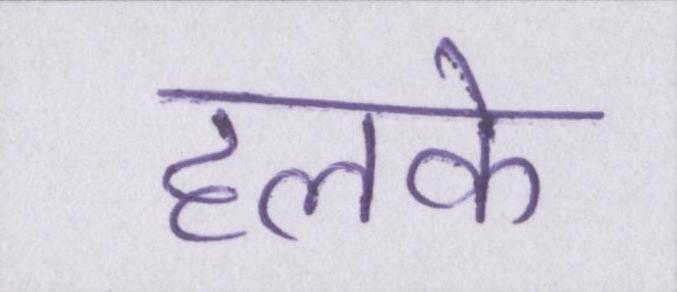 हलके